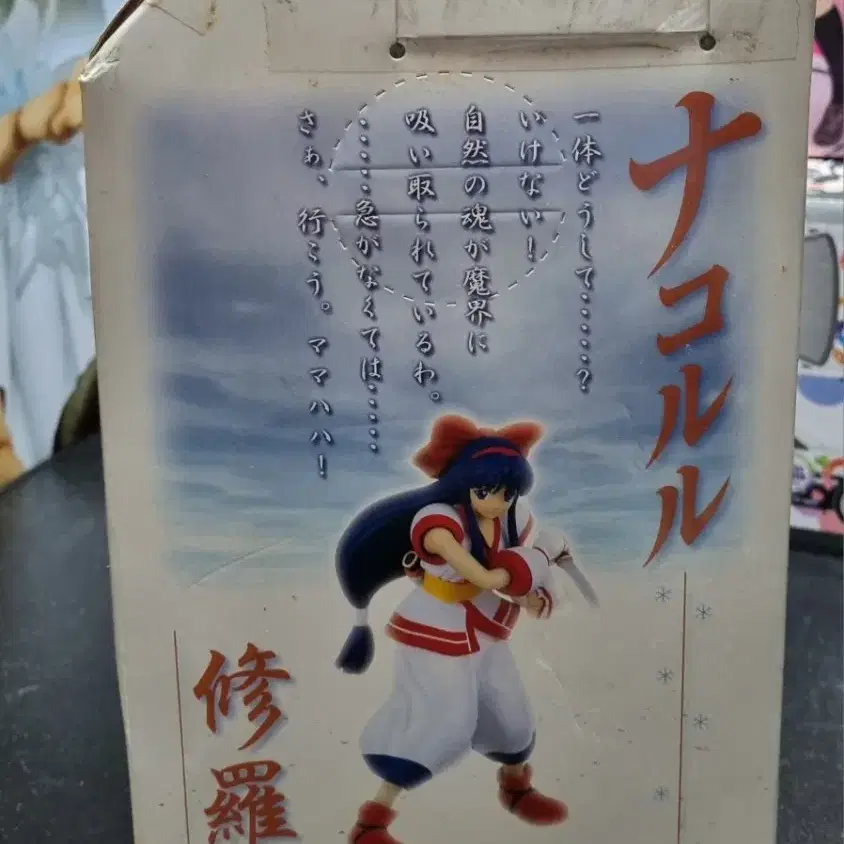 ナコルル
一体どうして‥‥‥?
いけない!
自然の魂が魔界に
吸い取られているわ。
‥‥‥急がなくては‥‥‥
さぁ、行こう。ママハハ!
修羅